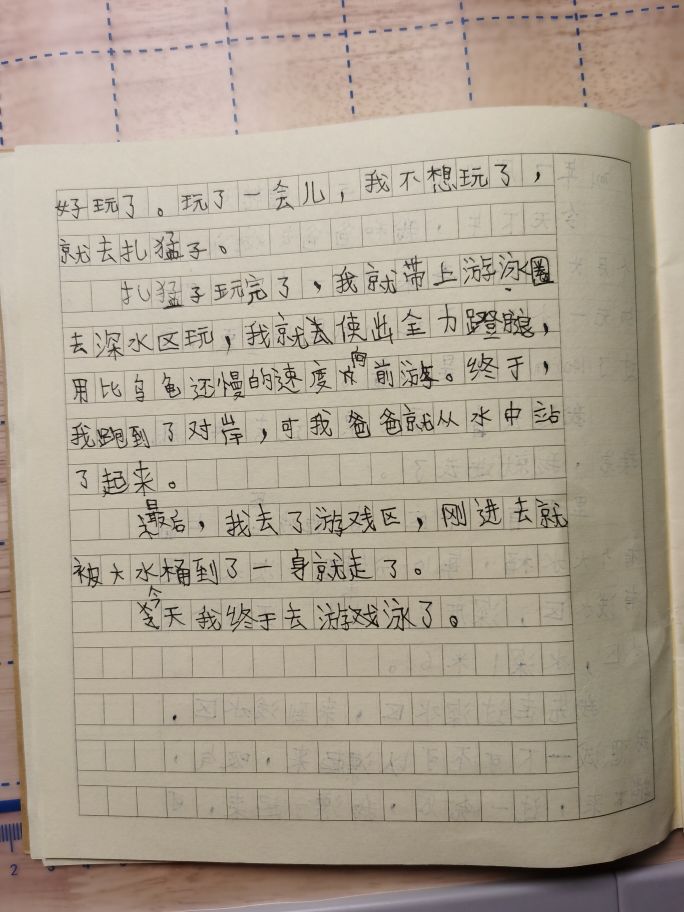 好玩了。玩了一会儿，我不想玩了，
就去扎猛子。
扎猛子玩完了，我就带上游泳圈
去深水区玩，我就去使出全力蹬腿，
用比乌龟还慢的速度向前游。终于，
我跑到了对岸，可我爸爸就从水中站
了起来。
最后，我去了游戏区，刚进去就
被大水桶到了一身就走了。
今天我终于去游戏泳了。
2